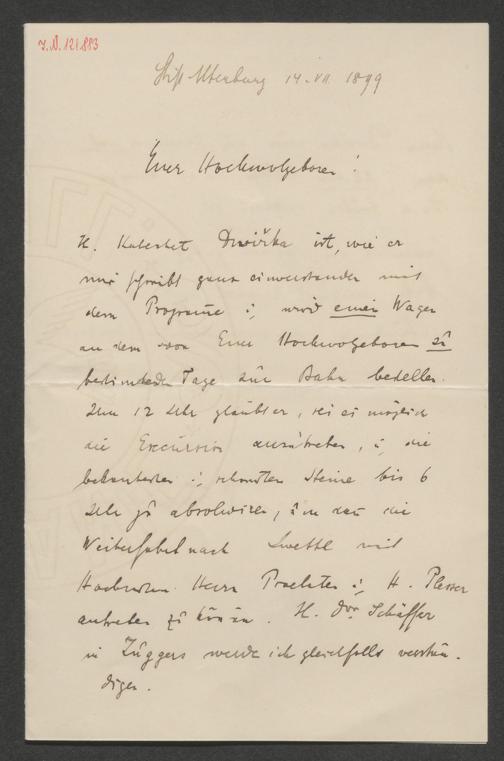 J.N. 121.883
Stift Altenburg 14. VII. 1899
Euer Hochwolgeboren!
H. Katechet Dwořžka ist, wie er
mir schreibt ganz einverstanden mit
dem Programe u. wird einen Wagen
an dem von Euer Hochwolgeboren zu
bestimenden Tage zur Bahn bestellen.
Um 12 Uhr glaubt er, sei es möglich
die Excursion anzutreten, u. die
bekantesten u. schönsten Steine bis 6
Uhr zu absolviren, um dan die
Weiterfahrt nach Zwettl mit
Herrn u. H. Plesser
antreten zu könen. H. Dor. Schäffer
in Zuggers werde ich gleichfalls verstän-
digen.